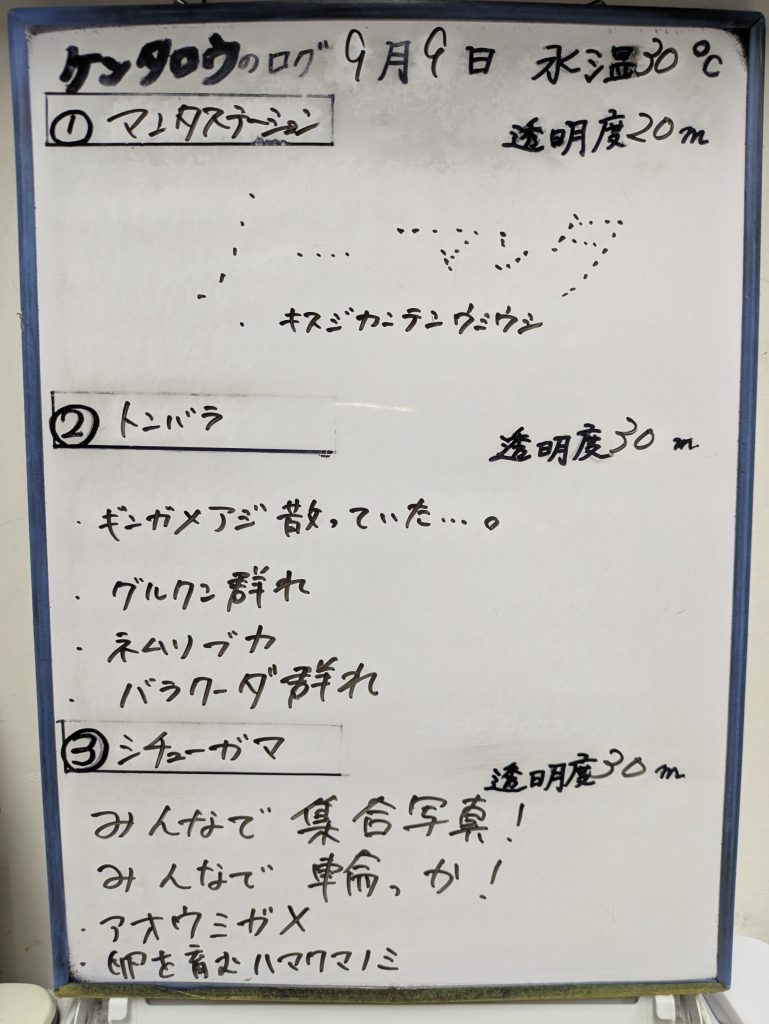 ケンタロウのログ 9月9日 水温30℃
① マンタステーション
透明度20m
ノーマンタ
・キスジカンテンウミウシ
② トンバラ
透明度30m
・ギンガメアジ散っていた…。
・グルクン群れ
・ネムリブカ
・バラクーダ群れ
③ シチューガマ
透明度30m
みんなで集合写真!
みんなで輪っか!
・アオウミガメ
・卵を育むハマクマノミ